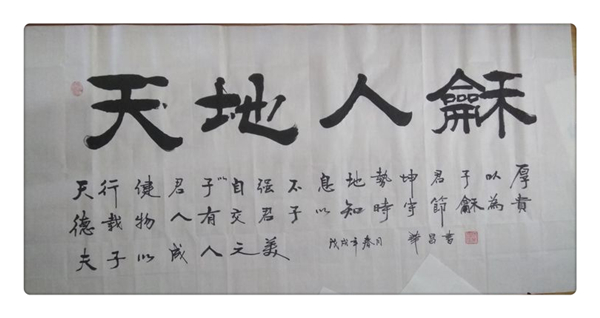 天地人龢
天行健君子以自强不息地勢坤君子以厚
德載物人有交君子以知時守節龢為貴
夫子以成人之美
戊戌年春月 華昌書